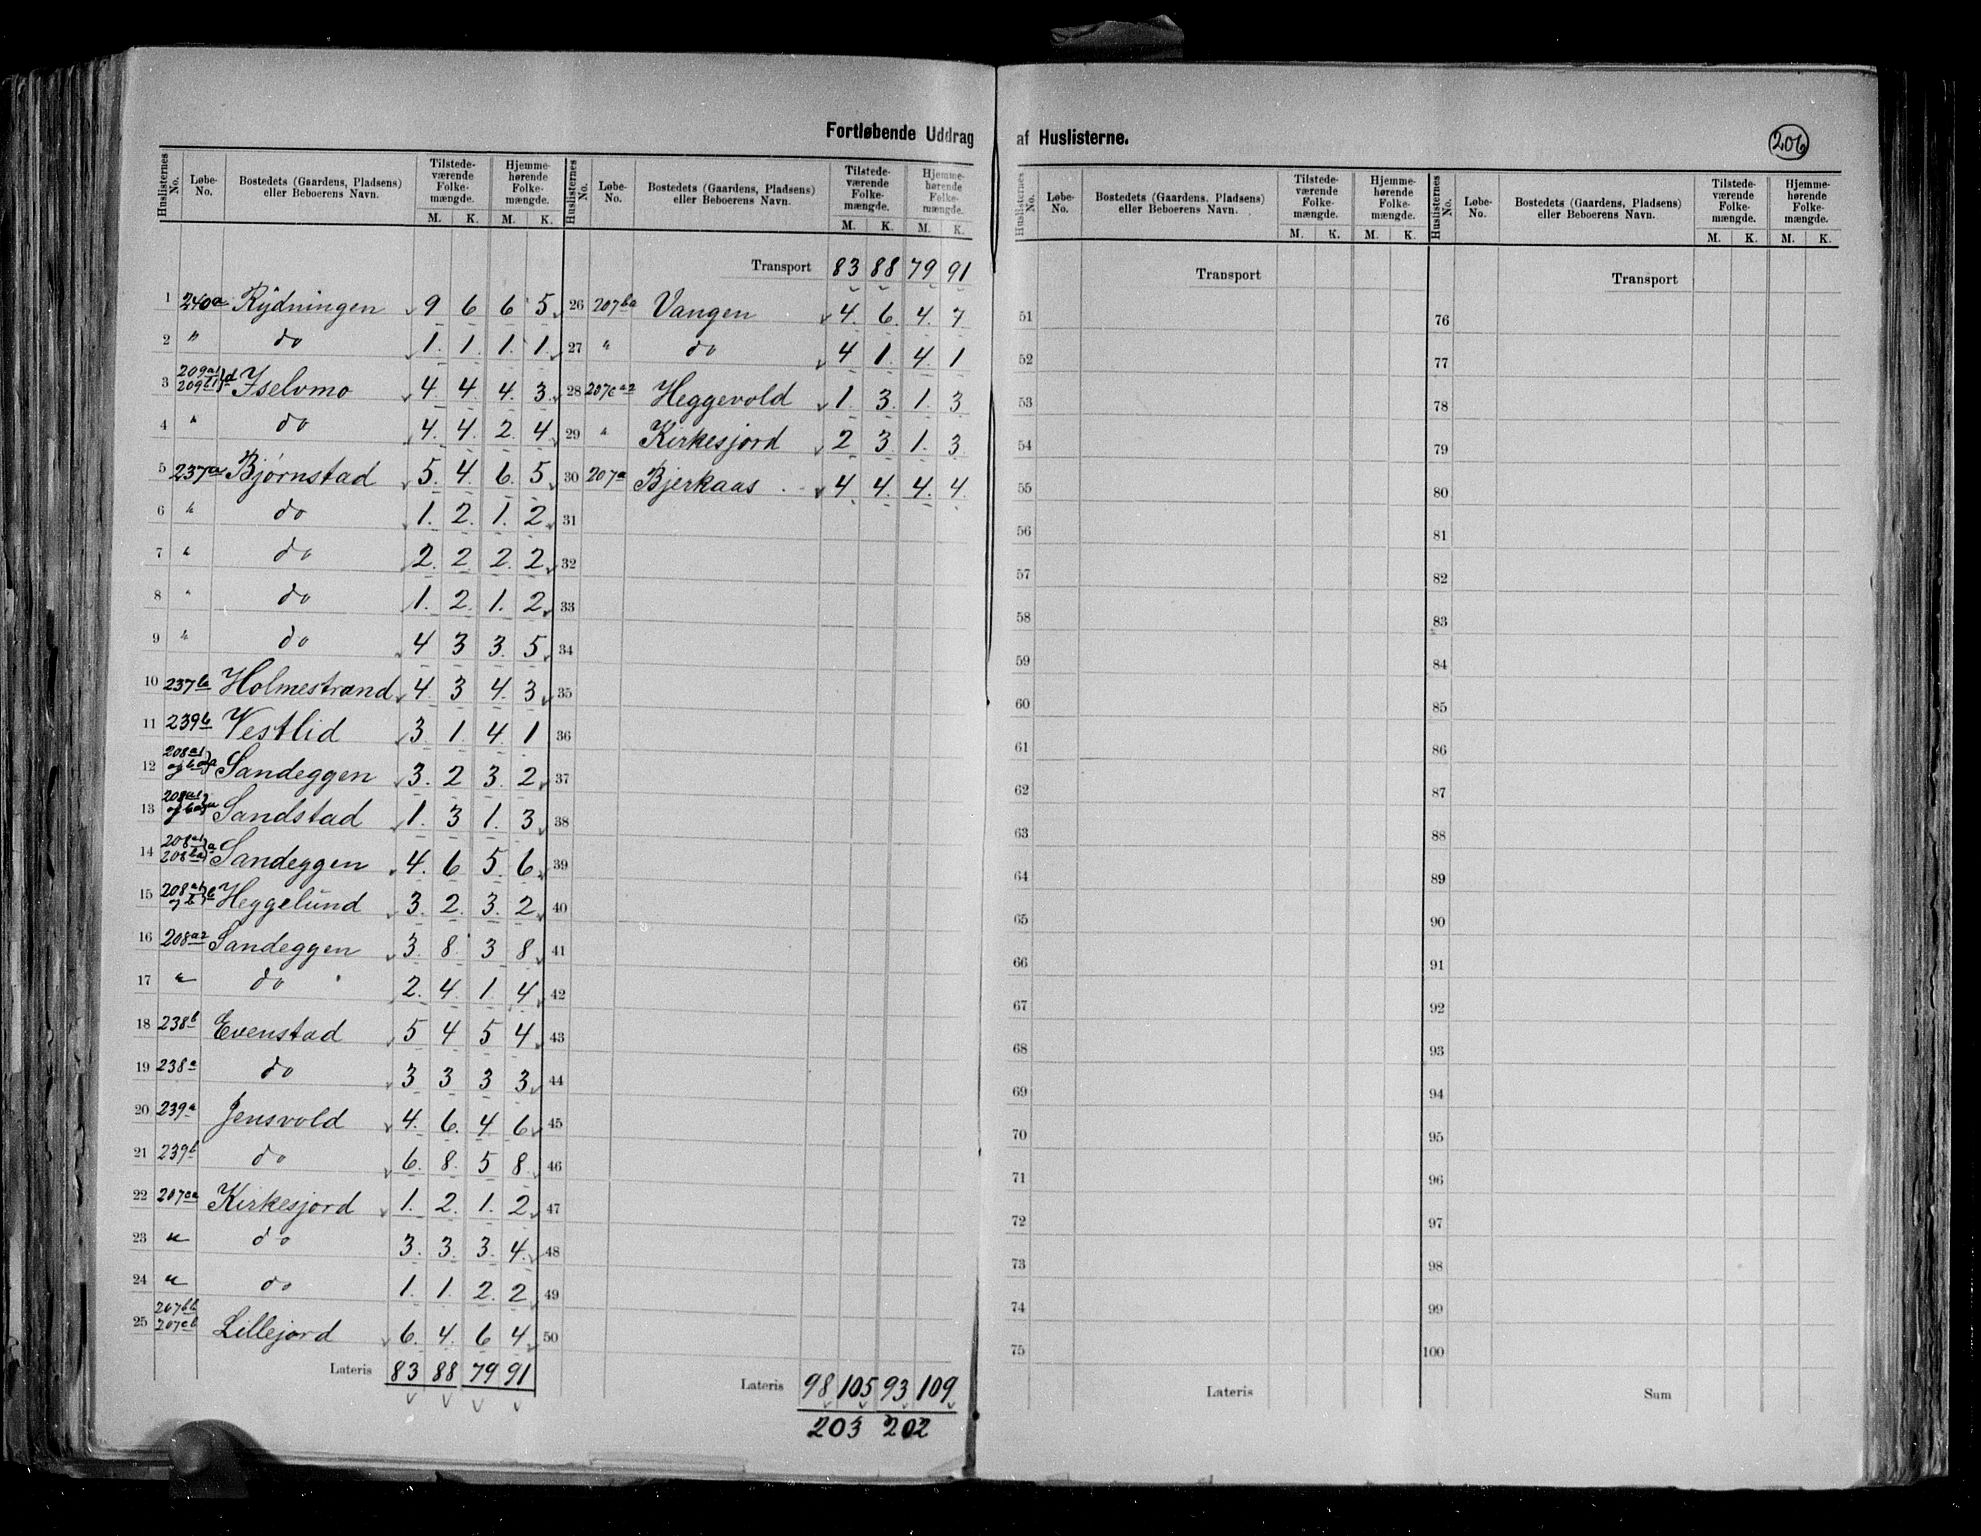 Fortløbende Uddrag af Huslisterne.
206
Huslisternes No. Løbe-No. Bostedets (Gaardens, Pladsens) eller Beboerens Navn. Tilstedeværende Folkemængde. M. K. Hjemmehørende Folkemængde. M. K.
1 240a Rydningen 9 6 6 5
2 " do 1. 1. 1. 1.
3 209a1 209b1 }d Iselvmo 4 4 4 3
4 " do 4. 4. 2. 4
5 237a Bjørnstad 5. 4. 6. 5
6 " do 1. 2. 1. 2
7 " do 2. 2 2. 2
8 " do 1. 2. 1. 2
9 " do 4 3 3. 5
10 237b Holmestrand 4. 3 4. 3
11 239b Vestlid 3. 1. 4. 1
12 208a1 og ba}a Sandeggen 3. 2 3. 2
13 208a1 og ba}a Sandstad 1. 3 1. 3
14 208a1 208ba}a Sandeggen 4. 6 5. 6
15 208a1 og b}c Heggelund 3. 2. 3. 2
16 208a2 Sandeggen 3. 8. 3 8
17 " do 2. 4. 1. 4
18 238b Evenstad 5 4 5 4
19 238a do 3 3 3 3
20 239a Jensvold 4. 6. 4 6
21 239b do 6. 8. 5 8
22 207ca Kirkesjord 1. 2. 1. 2
23 " do 3. 3. 3. 4
24 " do 1. 1. 2. 2
25 207bb 207cb Lillejord 6. 4. 6 4
Lateris 83 88 79 91
Huslisternes No. Løbe-No. Bostedets (Gaardens, Pladsens) eller Beboerens Navn. Tilstedeværende Folkemængde. M. K. Hjemmehørende Folkemængde. M. K.
Transport 83 88 79 91
26 207ba Vangen 4. 6. 4. 7
27 " do 4 1. 4 1
28 207ca2 Heggevold 1. 3 1. 3
29 " Kirkesjord 2 3 1. 3
30 207a Bjerkaas 4 4. 4. 4
31
32
33
34
35
36
37
38
39
40
41
42
43
44
45
46
47
48
49
50
Lateris 98 105 93 109
203 202
Huslisternes No. Løbe-No. Bostedets (Gaardens, Pladsens) eller Beboerens Navn. Tilstedeværende Folkemængde. M. K. Hjemmehørende Folkemængde. M. K.
Transport
51
52
53
54
55
56
57
58
59
60
61
62
63
64
65
66
67
68
69
70
71
72
73
74
75
Lateris
Huslisternes No. Løbe-No. Bostedets (Gaardens, Pladsens) eller Beboerens Navn. Tilstedeværende Folkemængde. M. K. Hjemmehørende Folkemængde. M. K.
Transport
76
77
78
79
80
81
82
83
84
85
86
87
88
89
90
91
92
93
94
95
96
97
98
99
100
Sum